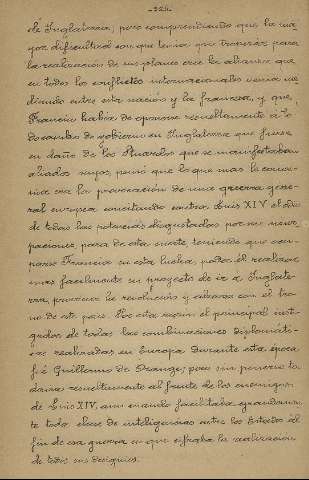 -325-
de Inglaterra; pero comprendiendo que la ma-
yor dificultad con que tenia que tropezar para
la realización de sus planes era la alianza que
en todos los conflictos internacionales venia me-
diando entre esta nación y la francesa, y que
Francia habia de oponerse resueltamente á to-
do cambio de gobierno en Inglaterra que fuese
en daño de los Stuardos que se manifestaban
aliados suyos, pensó que lo que mas le conve-
nia era la provocación de una guerra gene-
ral europea concitando contra Luis XIV el odio
de todas las potencias disgustadas por sus usur-
paciones, para de esta suerte teniendo que ocu-
parse Francia en esta lucha, poder él realizar
mas facilmente su proyecto de ir a Inglate-
rra, promover la revolución y alzarse con el tro-
no de este pais. Por esta razón el principal insti-
gador de todas las combinaciones diplomáti-
cas realizadas en Europa durante esta época
fué Guillermo de Orange, pues sin ponerse to-
davia resueltamente al frente de los enemigos
de Luis XIV, aun cuando facilitaba grandemen-
te toda clase de inteligencias entre los Estados al
fin de esa guerra en que cifraba la realización
de todos sus designios.